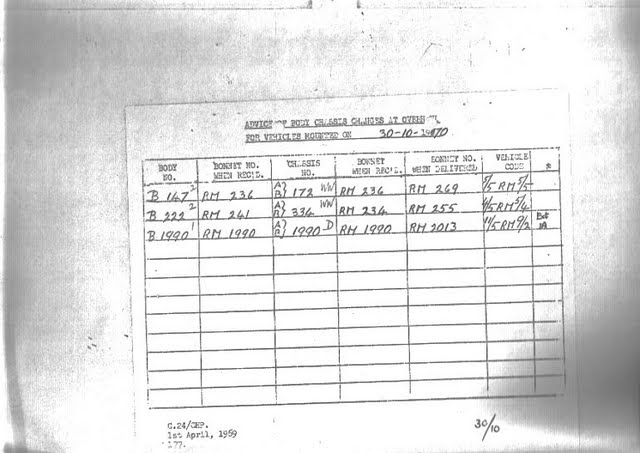 ADVICE OF BODY CHASSIS CHANGES AT OVERHAUL
FOR VEHICLES MOUNTED ON 30-10-1970
BODY NO. BONNET NO. WHEN REC'D. CHASSIS NO. BONNET WHEN REC'D. BONNET NO. WHEN DELIVERED VEHICLE CODE *
B 147 2 RM 236 A} B} 172 WW RM 236 RM 269 5/5 RM 5/5
B 222 2 RM 241 A} B} 334 WW RM 234 RM 255 4/5 RM 5/4
B 1990 1 RM 1990 A} B} 1990 D RM 1990 RM 2013 11/5 RM 9/2
C.24/CHP. 30/10
1st April, 1959
177.